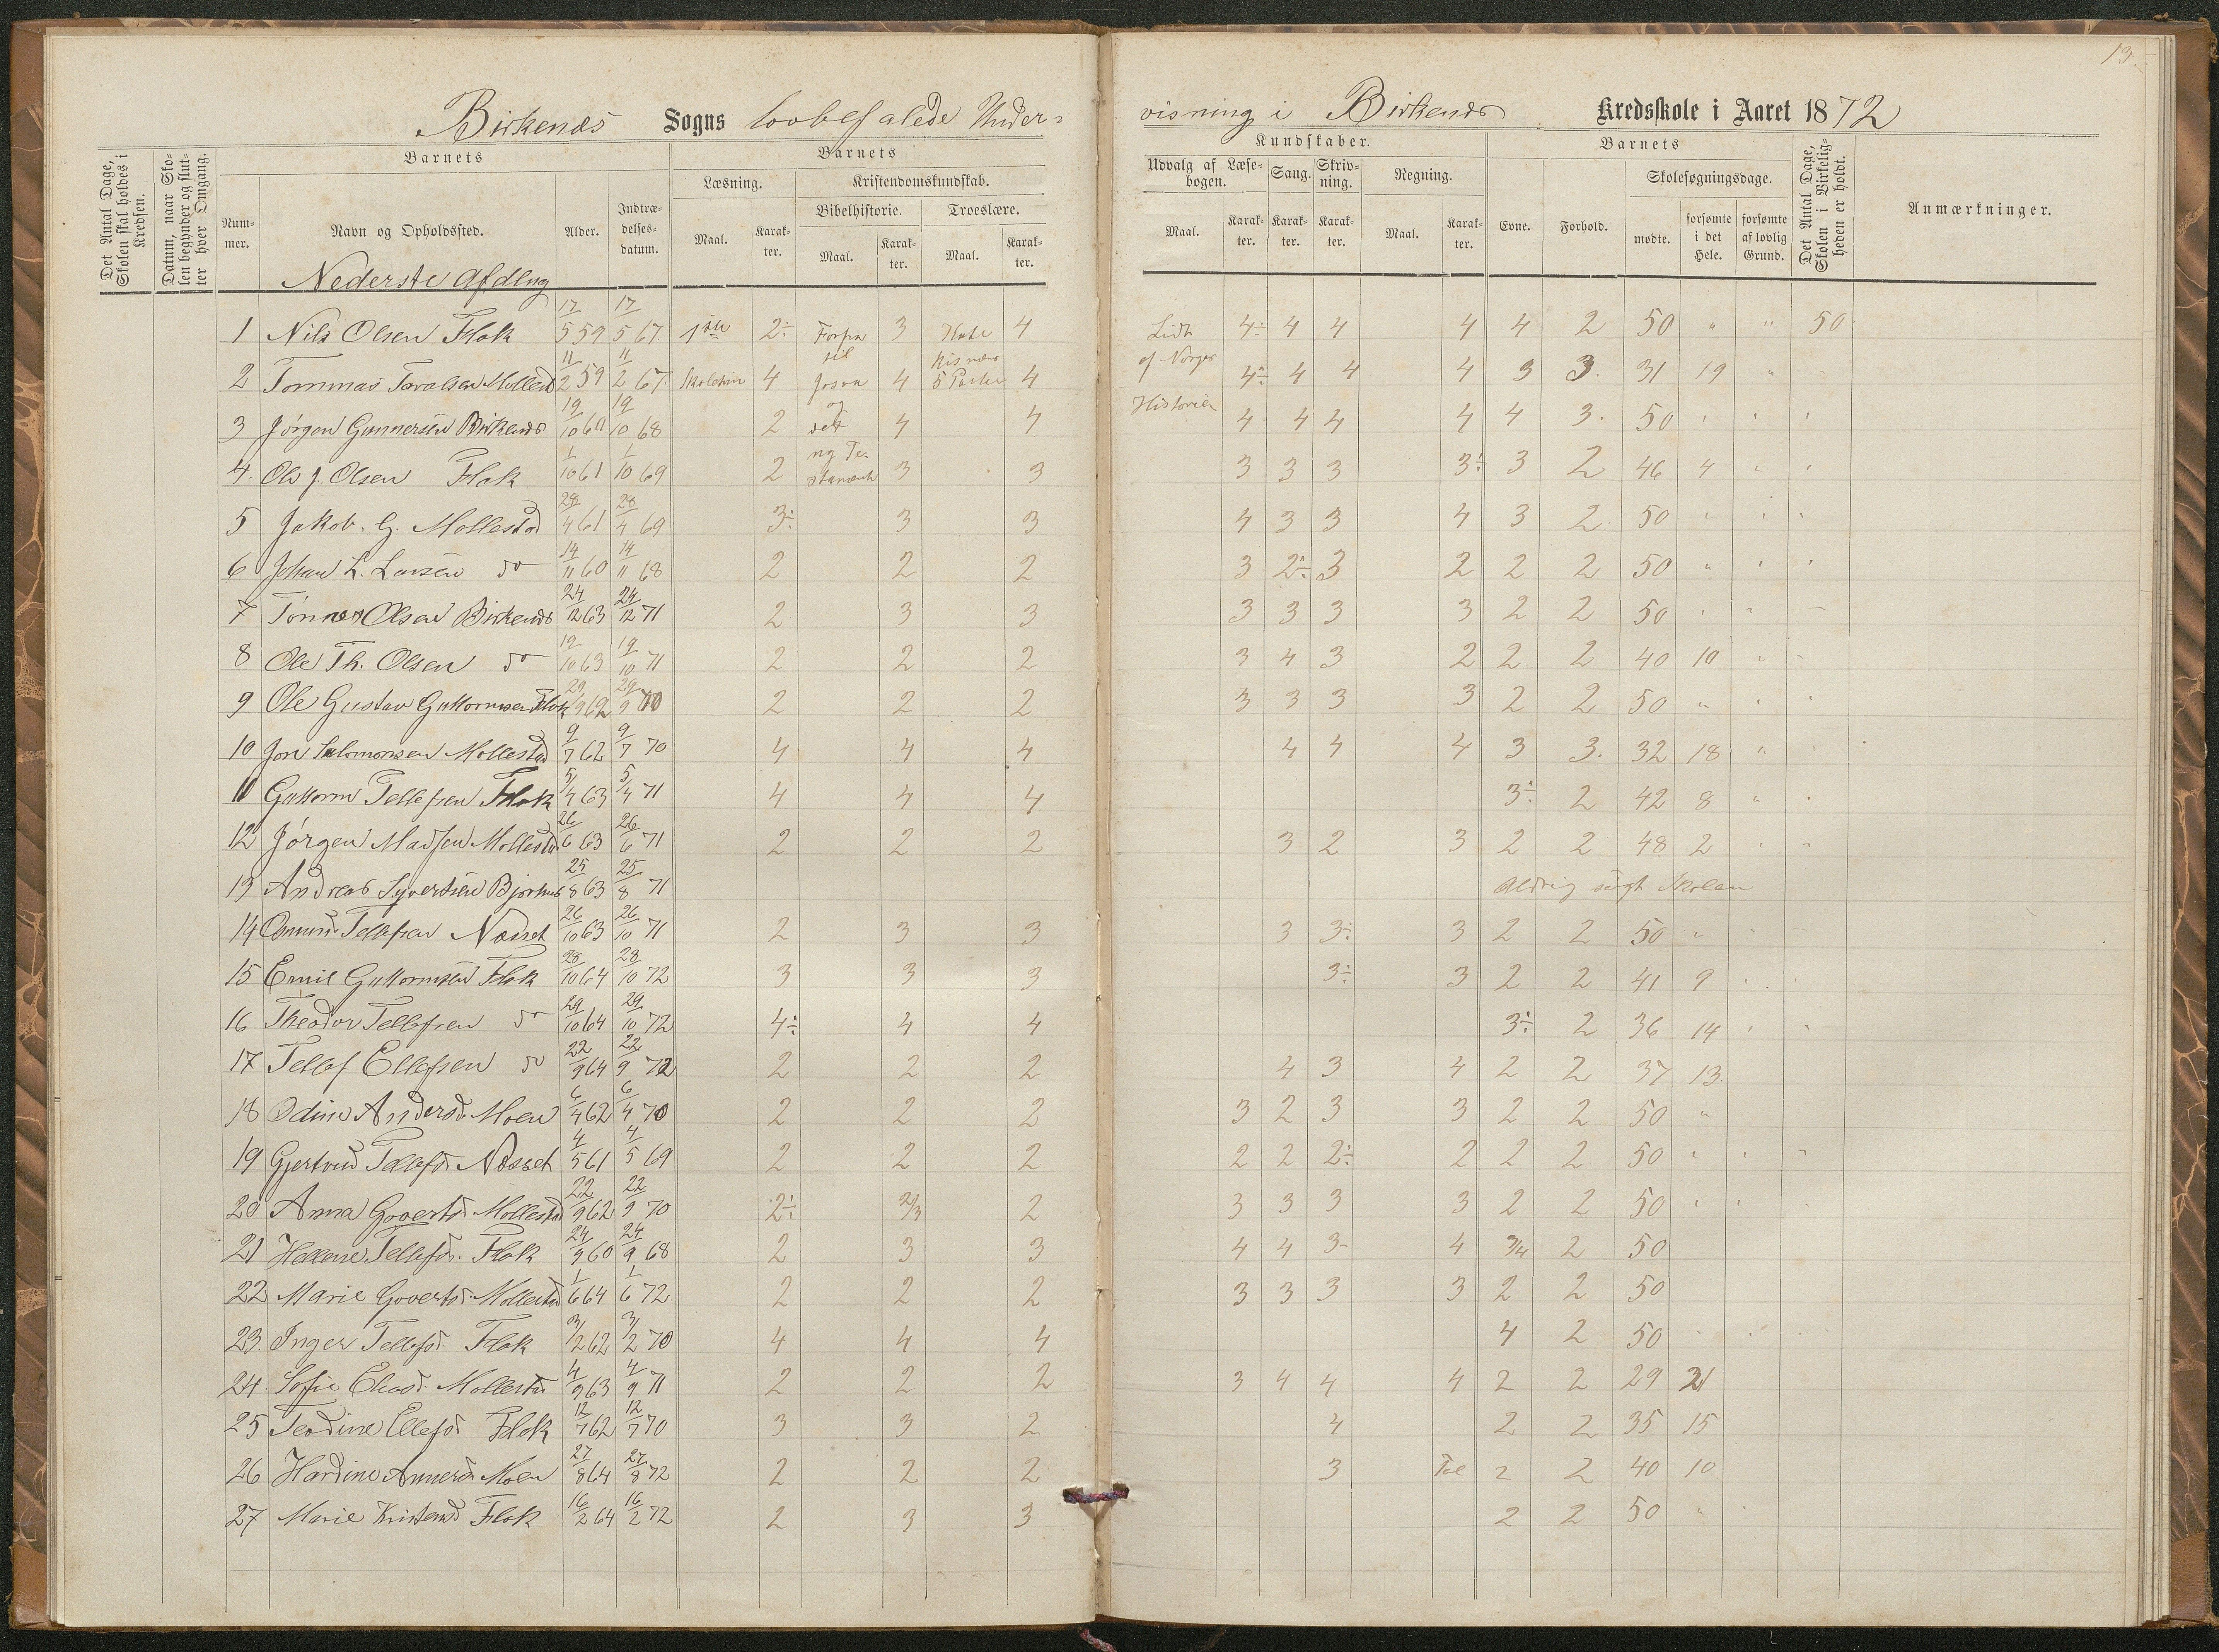 13.
Birkenæs Sogns lovbefalede Under-
visning i Birkenæs Kredsskole i Aaret 1872
Det Antal Dage, Skolen skal holdes i Kredsen.
Datum, naar Skolen begynder og slutter hver Omgang.
Barnets
Nummer.
Navn og Opholdssted.
Alder.
Indtrædelsesdatum.
Barnets
Læsning.
Maal.
Karakter.
Kristendomskundskab.
Bibelhistorie.
Maal.
Karakter.
Troeslære.
Maal.
Karakter.
Kundskaber.
Udvalg af Læsebogen.
Maal.
Karakter.
Sang.
Karakter.
Skrivning.
Karakter.
Regning.
Maal.
Karakter.
Barnets
Evne.
Forhold.
Skolesøgningsdage.
mødte.
forsømte i det Hele.
forsømte af lovlig Grund.
Det Antal Dage, Skolen i Virkeligheden er holdt.
Anmærkninger.
Nederste Afdling
1 Nils Olsen Flak 17/5 59 17/5 67 2÷ 3 4 Lidt 4÷ 4 4 4 4 2 50 " " 50
2 Tommas Mollest 11/2 59 11/2 67 4 Josva 4 4 af Norges 4÷ 4 4 4 3 3. 31 19 "
3 Jörgen Gunnersen Birkenæs 19/10 60 19/10 68 2 og det 4 4 Historie 4 4 4 4 4 3. 50
4. Ole J. Olsen Flak 1/10 61 1/10 69 2 ny Testament 3 3 3 3 3 3÷ 3 2 46 4
5 Jakob. G. Mollestad 28/4 61 28/4 69 3÷ 3 3 4 3 3 4 3 2 50
6 Johan L. Larsen do 14/11 60 14/11 68 2 2 2 3 2÷ 3 2 2 2 50
7 Tönnes Olsen Birkenæs 24/12 63 24/12 71 2 3 3 3 3 3 3 2 2 50
8 Ole Th. Olsen do 19/10 63 19/10 71 2 2 2 3 4 3 2 2 2 40 10
9 Ole Gustav Guttormsen Flak 29/9 62 29/9 70 2 2 2 3 3 3 3 2 2 50
10 Jon Salomonsen Mollestad 9/7 62 9/7 70 4 4 4 4 4 4 3 3. 32 18
11 Guttorm Tellefsen Flak 5/4 63 5/4 71 4 4 4 3÷ 2 42 8
12 Jörgen Madsen Mollestad 26/6 63 26/6 71 2 2 2 3 2 3 2 2 48 2
13 Andreas Syvertsen 25/8 63 25/8 71 Aldrig sögt Skolen
14 Tellefsen Næsset 26/10 63 26/10 71 2 3 3 3 3÷ 3 2 2 50
15 Emil Guttormsen Flak 28/10 64 28/10 72 3 3 3 3÷ 3 2 2 41 9
16 Theodor Tellefsen do 29/10 64 29/10 72 4÷ 4 4 3÷ 2 36 14
17 Tellef Ellefsen do 22/9 64 22/9 72 2 2 2 4 3 4 2 2 37 13
18 Odine Andersd. Moen 6/4 62 6/4 70 2 2 2 3 2 3 3 2 2 50
19 Gjertrud Tellefsd. Næsset 4/5 61 4/5 69 2 2 2 2 2 2÷ 2 2 2 50
20 Anna Govertsd. Mollestad 22/9 62 22/9 70 2÷ 2/3 2 3 3 3 3 2 2 50
21 Hellene Tellefsd. Flak 24/9 60 24/9 68 2 3 3 4 4 3- 4 3/4 2 50
22 Marie Govertsd. Mollestad 1/6 64 1/6 72 2 2 2 3 3 3 3 2 2 50
23. Inger Tellefsd. Flak 3/2 62 3/2 70 4 4 4 4 2 50
24. Sofie Mollestad 4/9 63 4/9 71 2 2 2 3 4 4 4 2 2 29 21
25 Teodine Ellefsd Flak 12/7 62 12/7 70 3 3 2 4 2 2 35 15
26 Hardine Moen 27/8 64 27/8 72 2 2 2 3 2 2 40 10
27 Marie Kristensd Flak 16/2 64 16/2 72 2 3 3 2 2 50